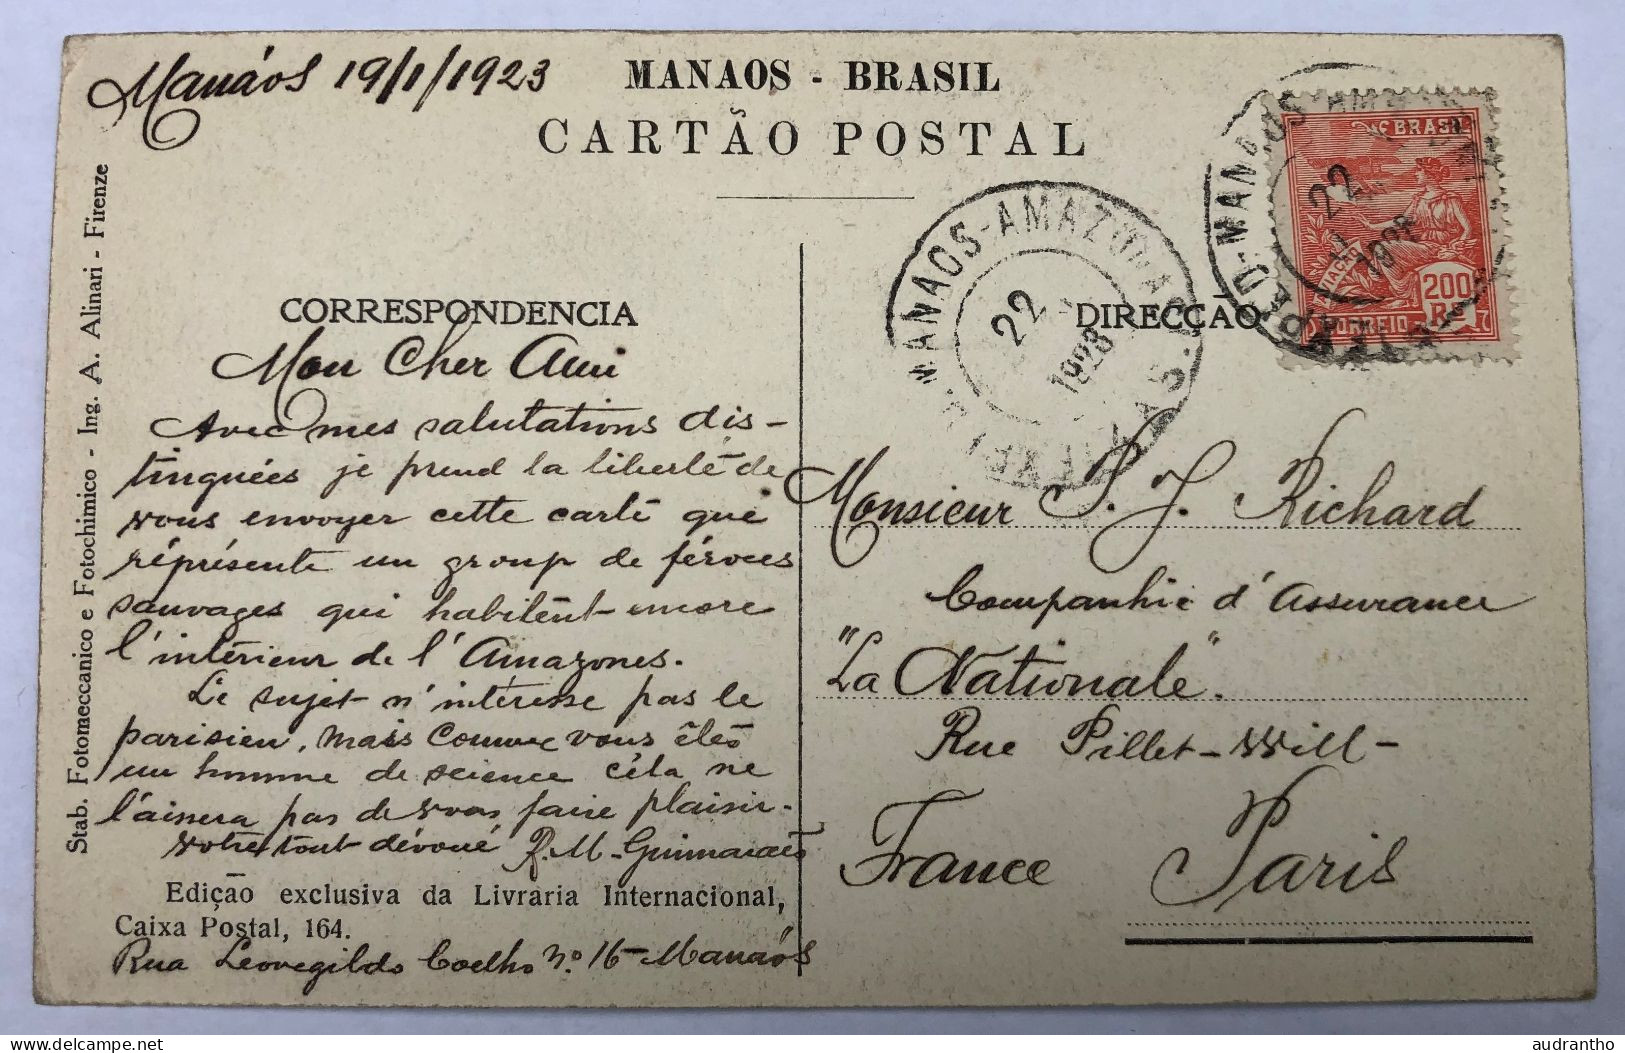 Manáos 19/1/1923
MANAOS - BRASIL
CARTÃO POSTAL
CORRESPONDENCIA
Mon Cher Ami
Avec mes salutations dis-
tinguées je prend la liberté de
vous envoyer cette carte que
réprésente un group de féroces
sauvages qui habitent encore
l'intérieur de l'Amazones.
Le sujet n'intéresse pas le
parisien, mais comme vous êtes
un homme de science céla ne
laissera pas de vous faire plaisir.
votre tout dévoué R. M. Guimarães
Edição exclusiva da Livraria Internacional,
Caixa Postal, 164.
Rua Leovegildo Coelho nº 16 - Manáos
Stab. Fotomeccanico e Fotochimico - Ing. A. Alinari - Firenze
MANAOS-AMAZONAS
22
1923
DIRECÇÃO
Monsieur S. J. Richard
Companhie d'Assurance
"La Nationale".
Rue Pillet-Will-
France Paris
BRASIL
AVIAÇÃO
200
RS
CORREIO
MANAOS
22